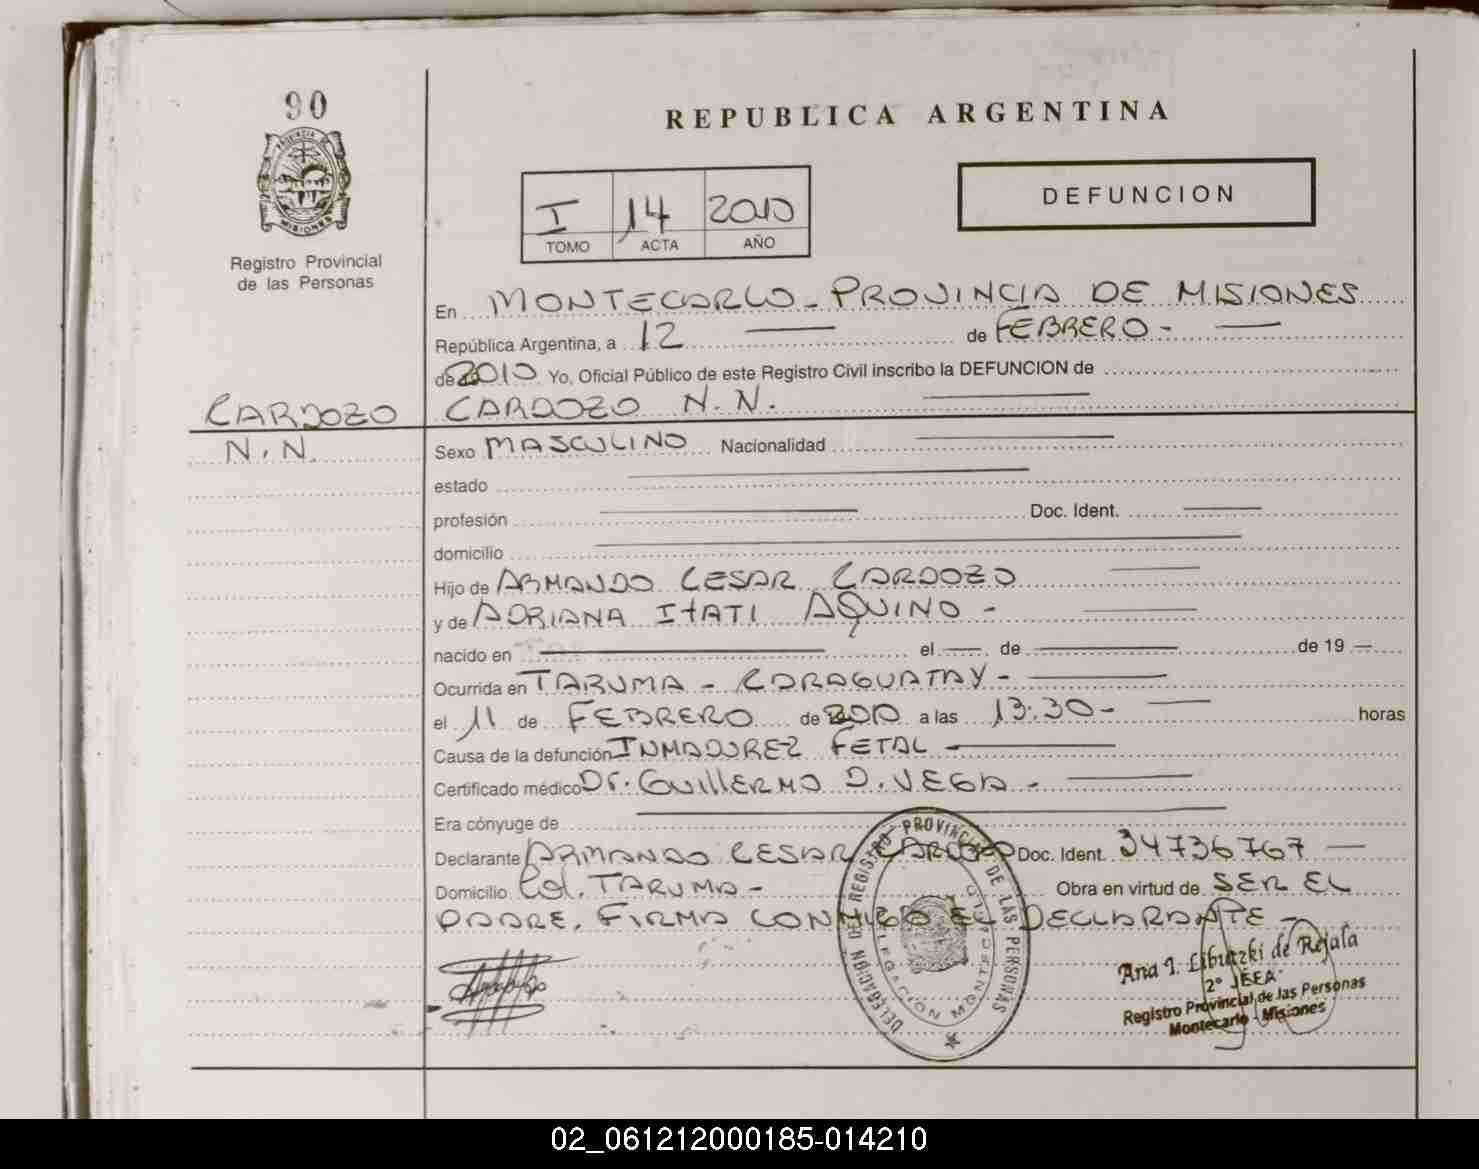 90
PROVINCIA DE
MISIONES
Registro Provincial
de las Personas
REPUBLICA ARGENTINA
I 14 2010
TOMO ACTA AÑO
DEFUNCION
En MONTECARLO - PROVINCIA DE MISIONES
República Argentina, a 12 de FEBRERO -
de 2010 Yo, Oficial Público de este Registro Civil inscribo la DEFUNCION de
CARDOZO CARDOZO N.N.
N.N. Sexo MASCULINO Nacionalidad
estado
profesión Doc. Ident.
domicilio
Hijo de ARMANDO CESAR CARDOZO
y de ADRIANA ITATI AQUINO -
nacido en el de de 19
Ocurrida en TARUMA - CARAGUATAY -
el 11 de FEBRERO de 2010 a las 13:30 - horas
Causa de la defunción INMADUREZ FETAL
Certificado médico Dr. GUILLERMO D. VEGA -
Era cónyuge de
Declarante ARMANDO CESAR CARDOZO Doc. Ident. 34736767
Domicilio Col. TARUMA - Obra en virtud de SER EL
PADRE, FIRMA CONMIGO EL DECLARANTE -
DELEGACION DEL REGISTRO PROVINCIAL DE LAS PERSONAS
DELEGACION MONTECARLO
Ana I. de Rejala
2° JEFA
Registro Provincial de las Personas
Montecarlo - Misiones
02_061212000185-014210